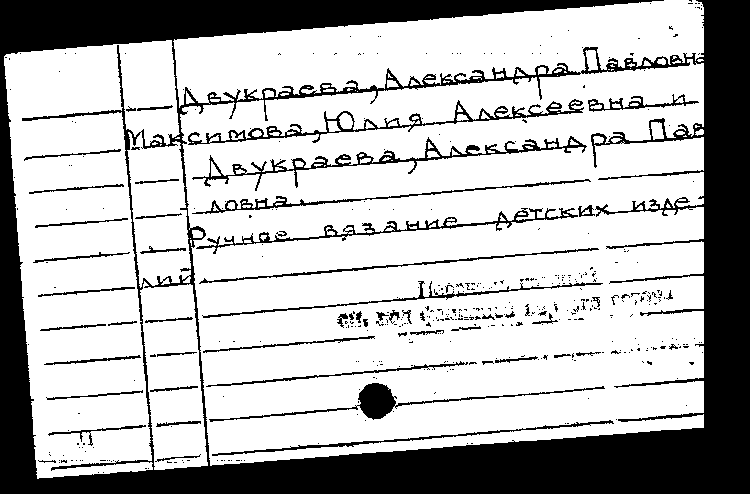 Двукраева, Александра Павловна
Максимова, Юлия Алексеевна и
Двукраева, Александра Пав
ловна.
Ручное вязание детских изде-
лий.
см. под фамилией автора
П